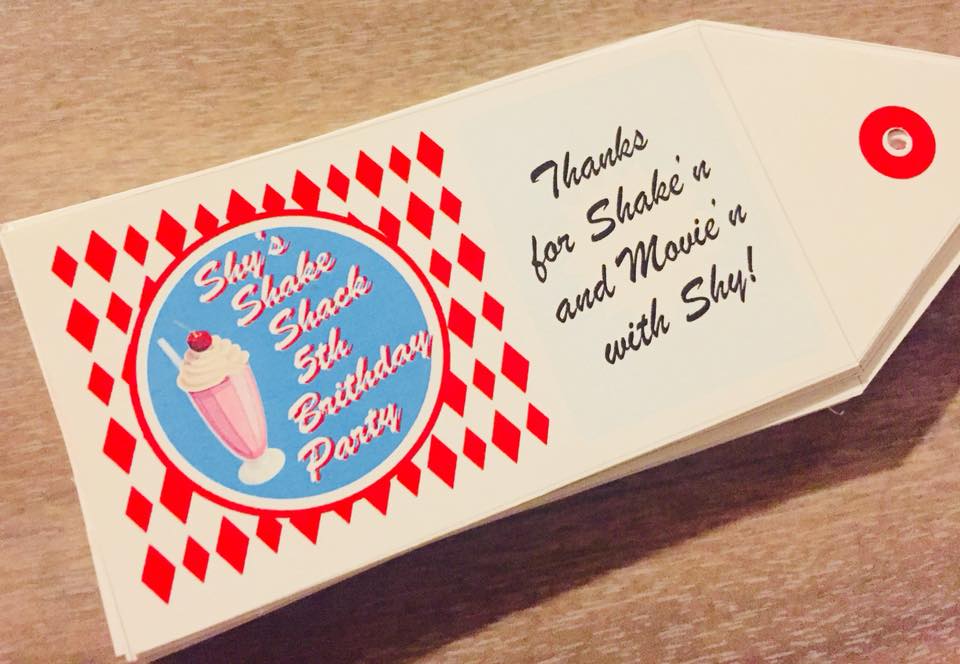 Shy's
Shake
Shack
5th
Brithday
Party
Thanks
for Shake'n
and Movie'n
with Shy!